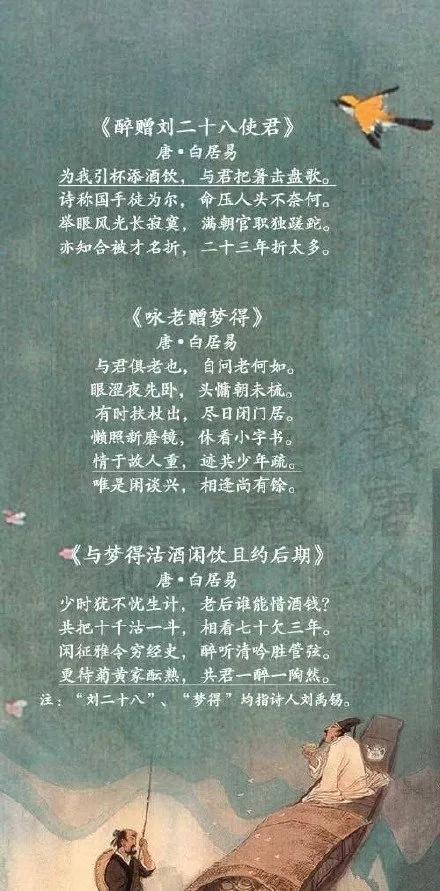 《醉赠刘二十八使君》
唐·白居易
为我引杯添酒饮，与君把箸击盘歌。
诗称国手徒为尔，命压人头不奈何。
举眼风光长寂寞，满朝官职独蹉跎。
亦知合被才名折，二十三年折太多。
《咏老赠梦得》
唐·白居易
与君俱老也，自问老何如。
眼涩夜先卧，头慵朝未梳。
有时扶杖出，尽日闭门居。
懒照新磨镜，休看小字书。
情于故人重，迹共少年疏。
唯是闲谈兴，相逢尚有馀。
《与梦得沽酒闲饮且约后期》
唐·白居易
少时犹不忧生计，老后谁能惜酒钱？
共把十千沽一斗，相看七十欠三年。
闲征雅令穷经史，醉听清吟胜管弦。
更待菊黄家酝熟，共君一醉一陶然。
注：“刘二十八”、“梦得”均指诗人刘禹锡。